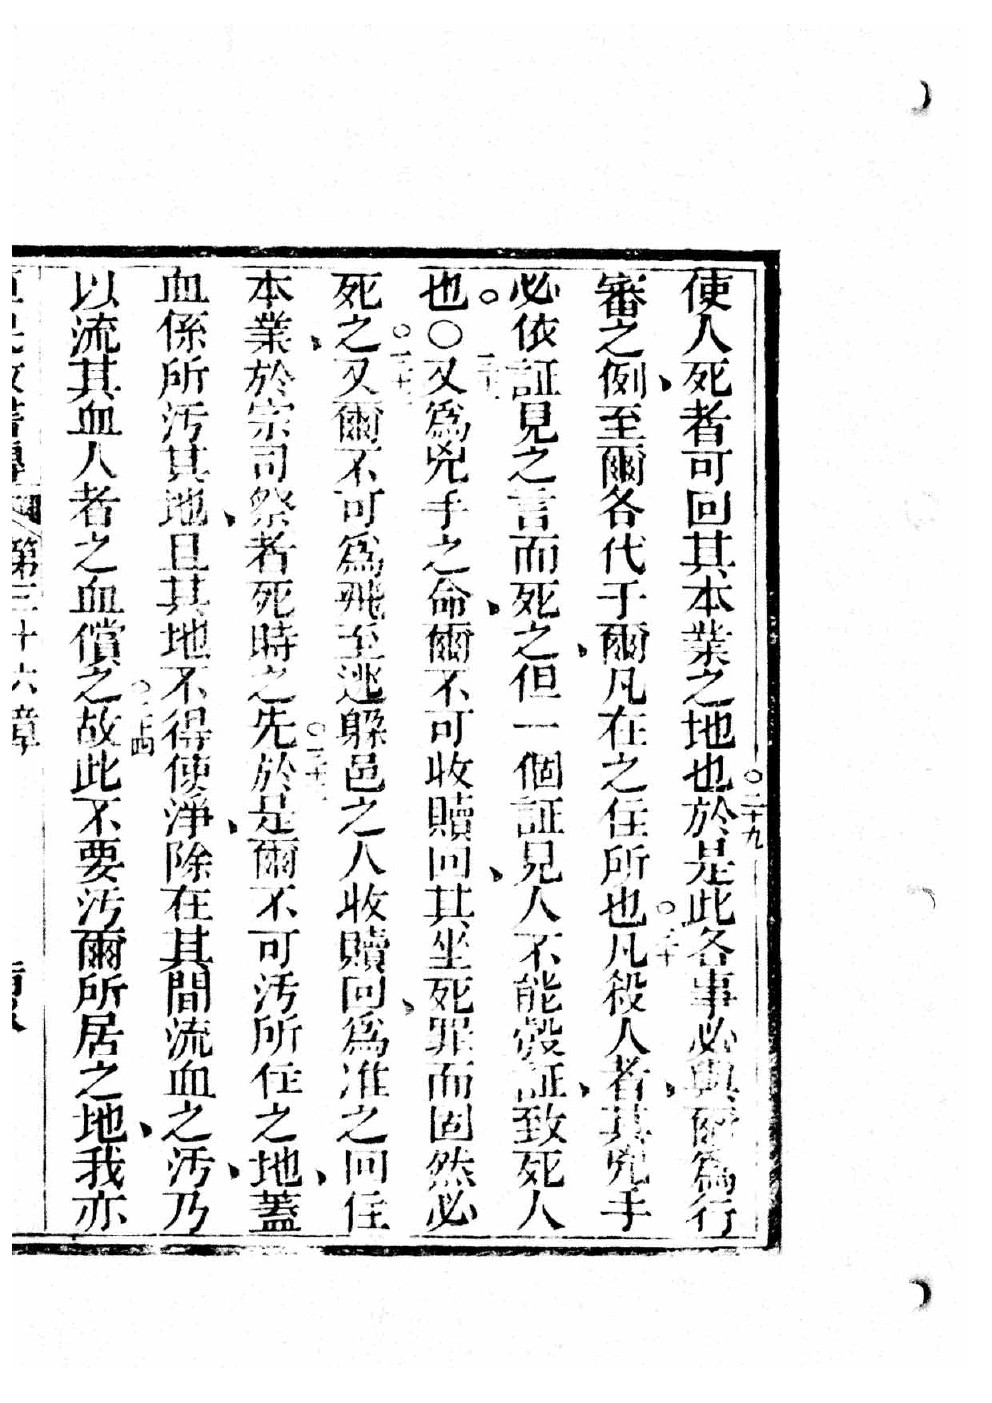 使人死者可回其本業之地也於是此各事必與爾爲行
○二十九
審之例、至爾各代于爾凡在之住所也凡殺人者、其兇手
必依証見之言而死之、但一個証見人不能彀証、致死人
也○又爲兇手之命、爾不可收贖回、其坐死罪而固然必
死之又爾不可爲飛至逃躲邑之人收贖回、爲准之回住
本業、於宗司祭者死時之先於是爾不可汚所住之地、蓋
血係所汚其地、且其地不得使淨、除在其間流血之汚、乃
以流其血人者之血償之故此不要汚爾所居之地、我亦
第三十六章